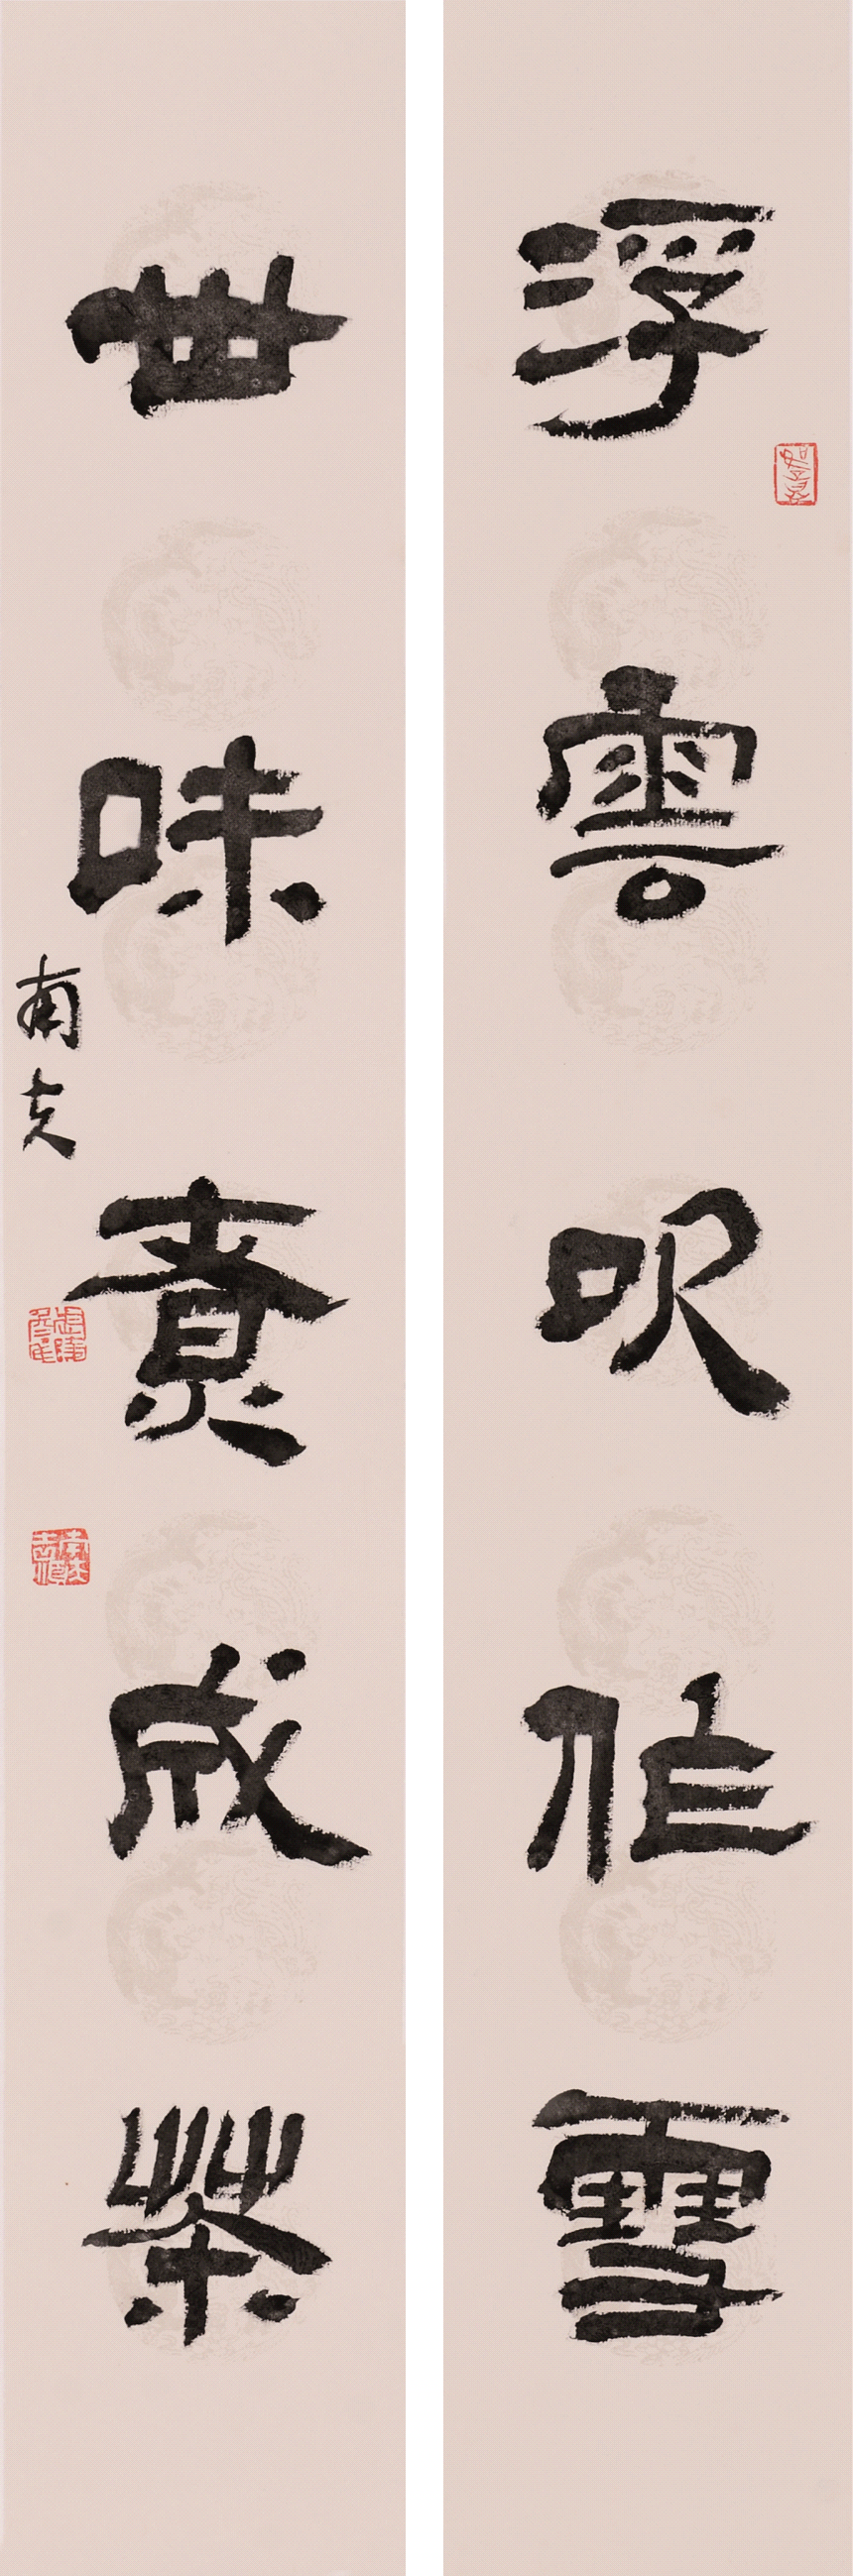 浮雲吹作雪
世味煮成茶
南夫